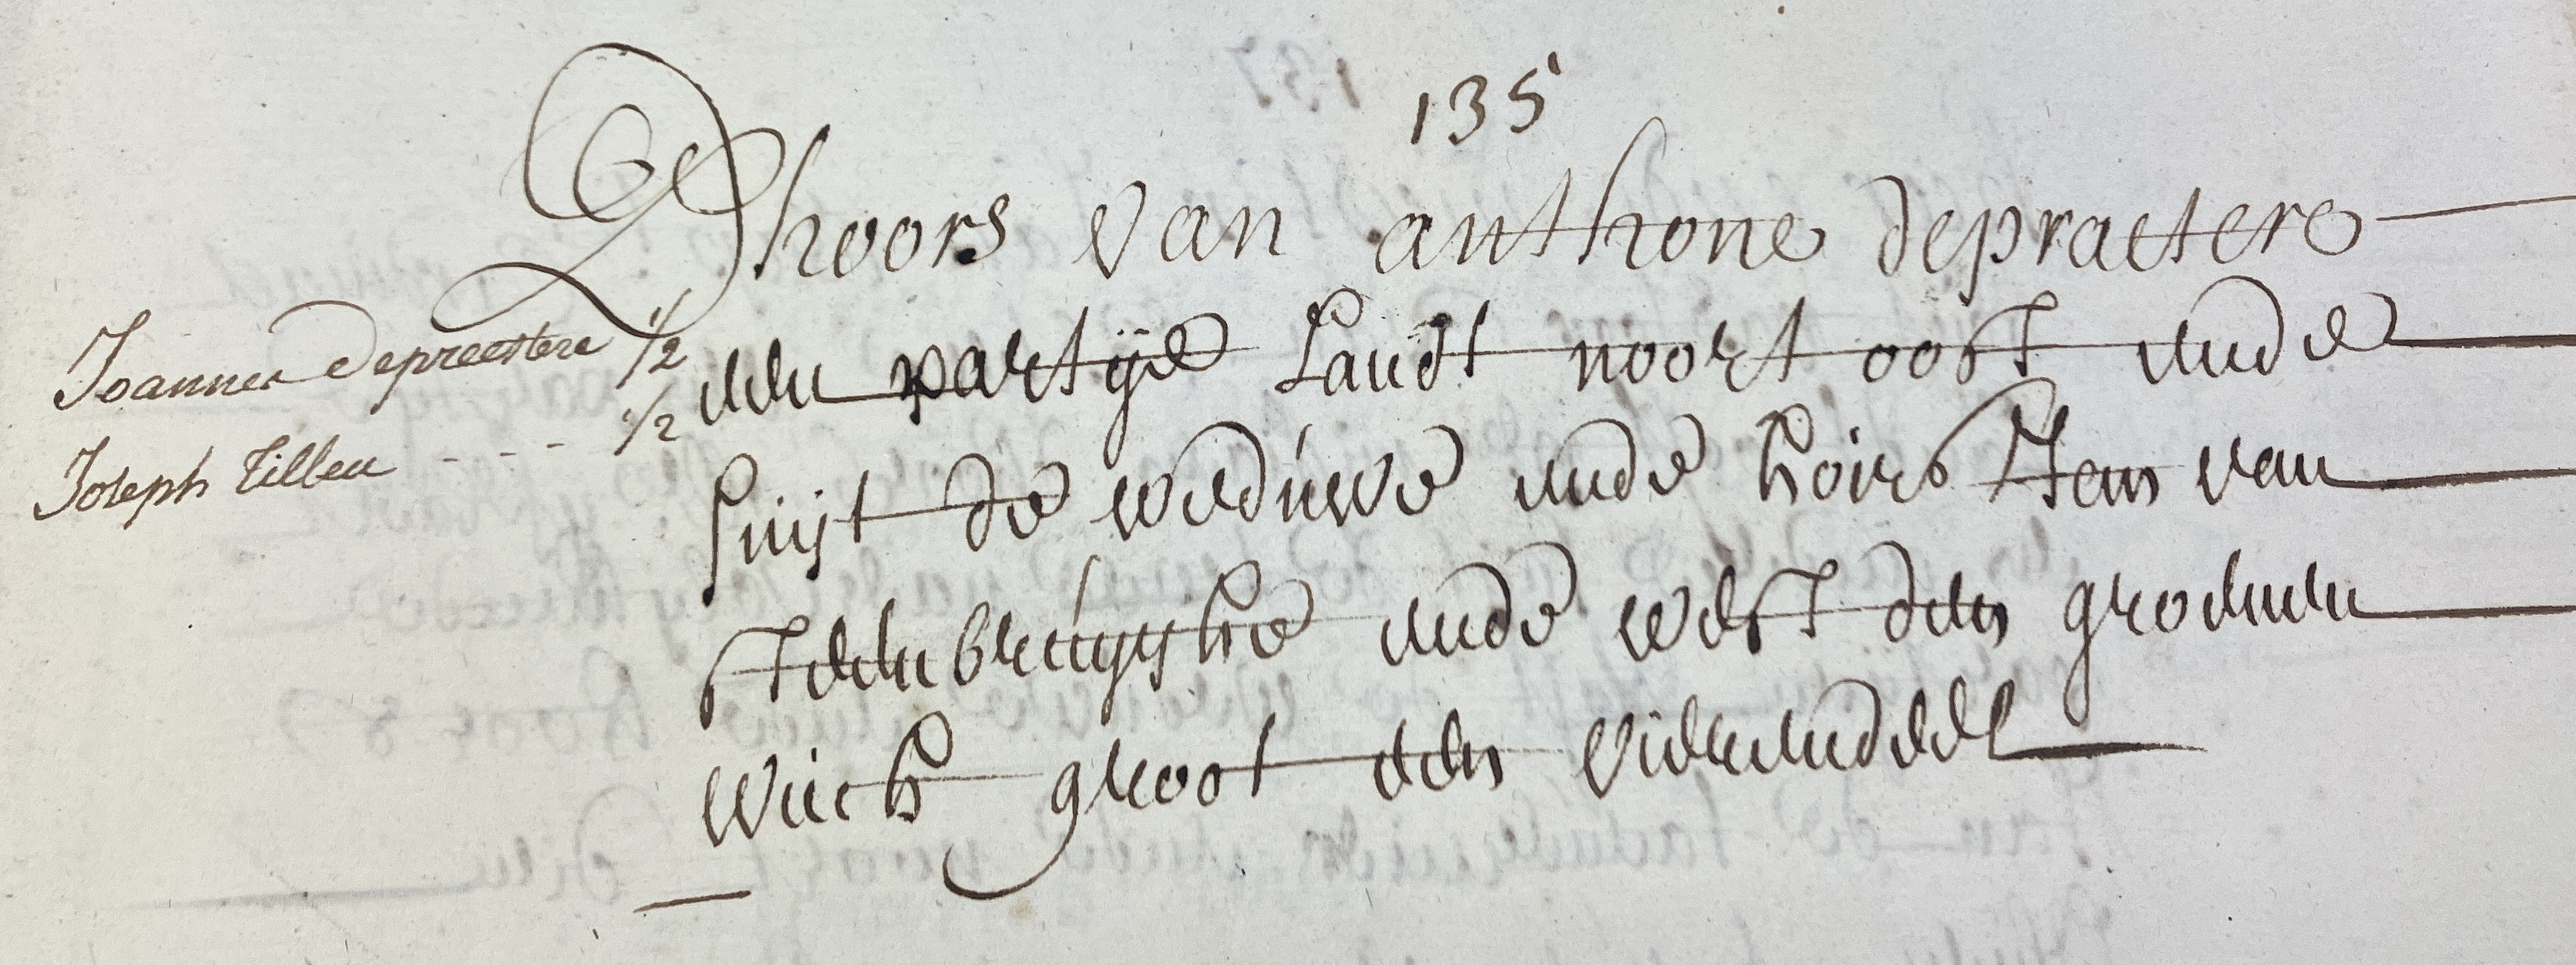 135
Dhoors van anthone depraetere
Joannes Depraetere 1/2
Joseph Tilleu - - - 1/2
een partije Landt noort oost ende
suijt de weduwe ende hoirs Jan van
steenbruijghe ende west den groenen
wech groot een vierendeel